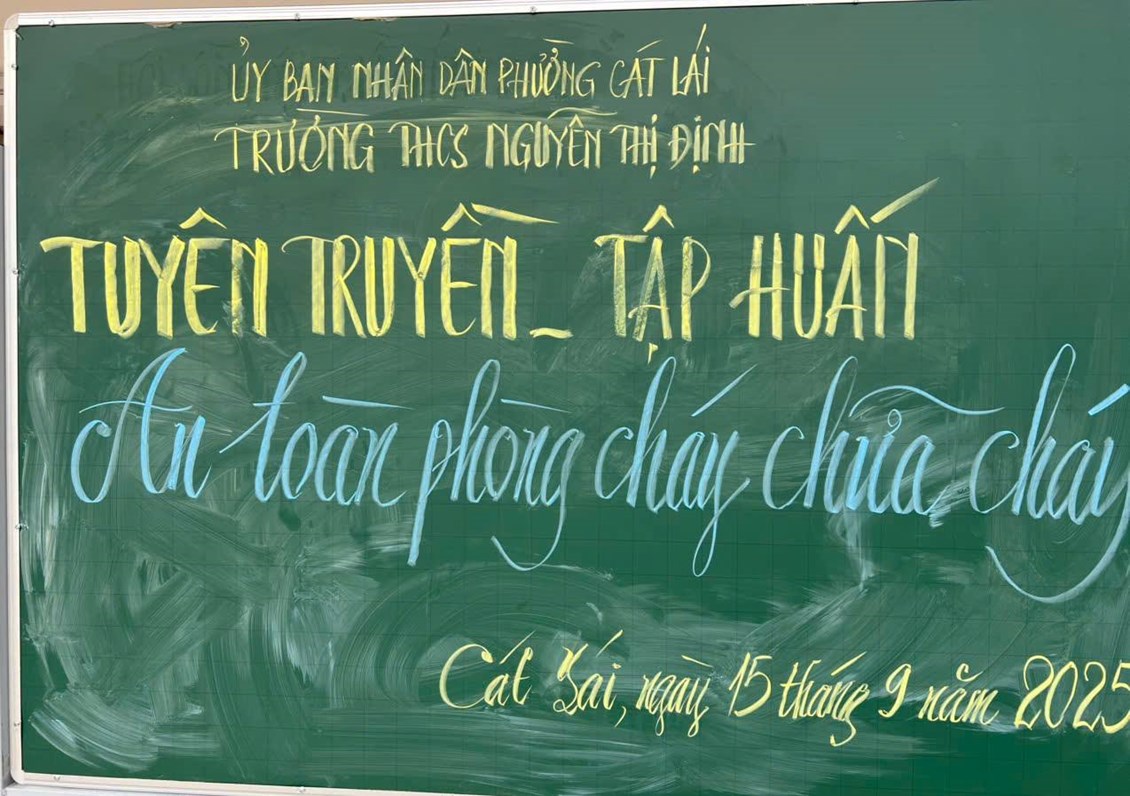 ỦY BAN NHÂN DÂN PHƯỜNG CÁT LÁI
TRƯỜNG THCS NGUYỄN THỊ ĐỊNH
TUYÊN TRUYỀN_ TẬP HUẤN
An toàn phòng cháy chữa cháy
Cát Lái, ngày 15 tháng 9 năm 2025